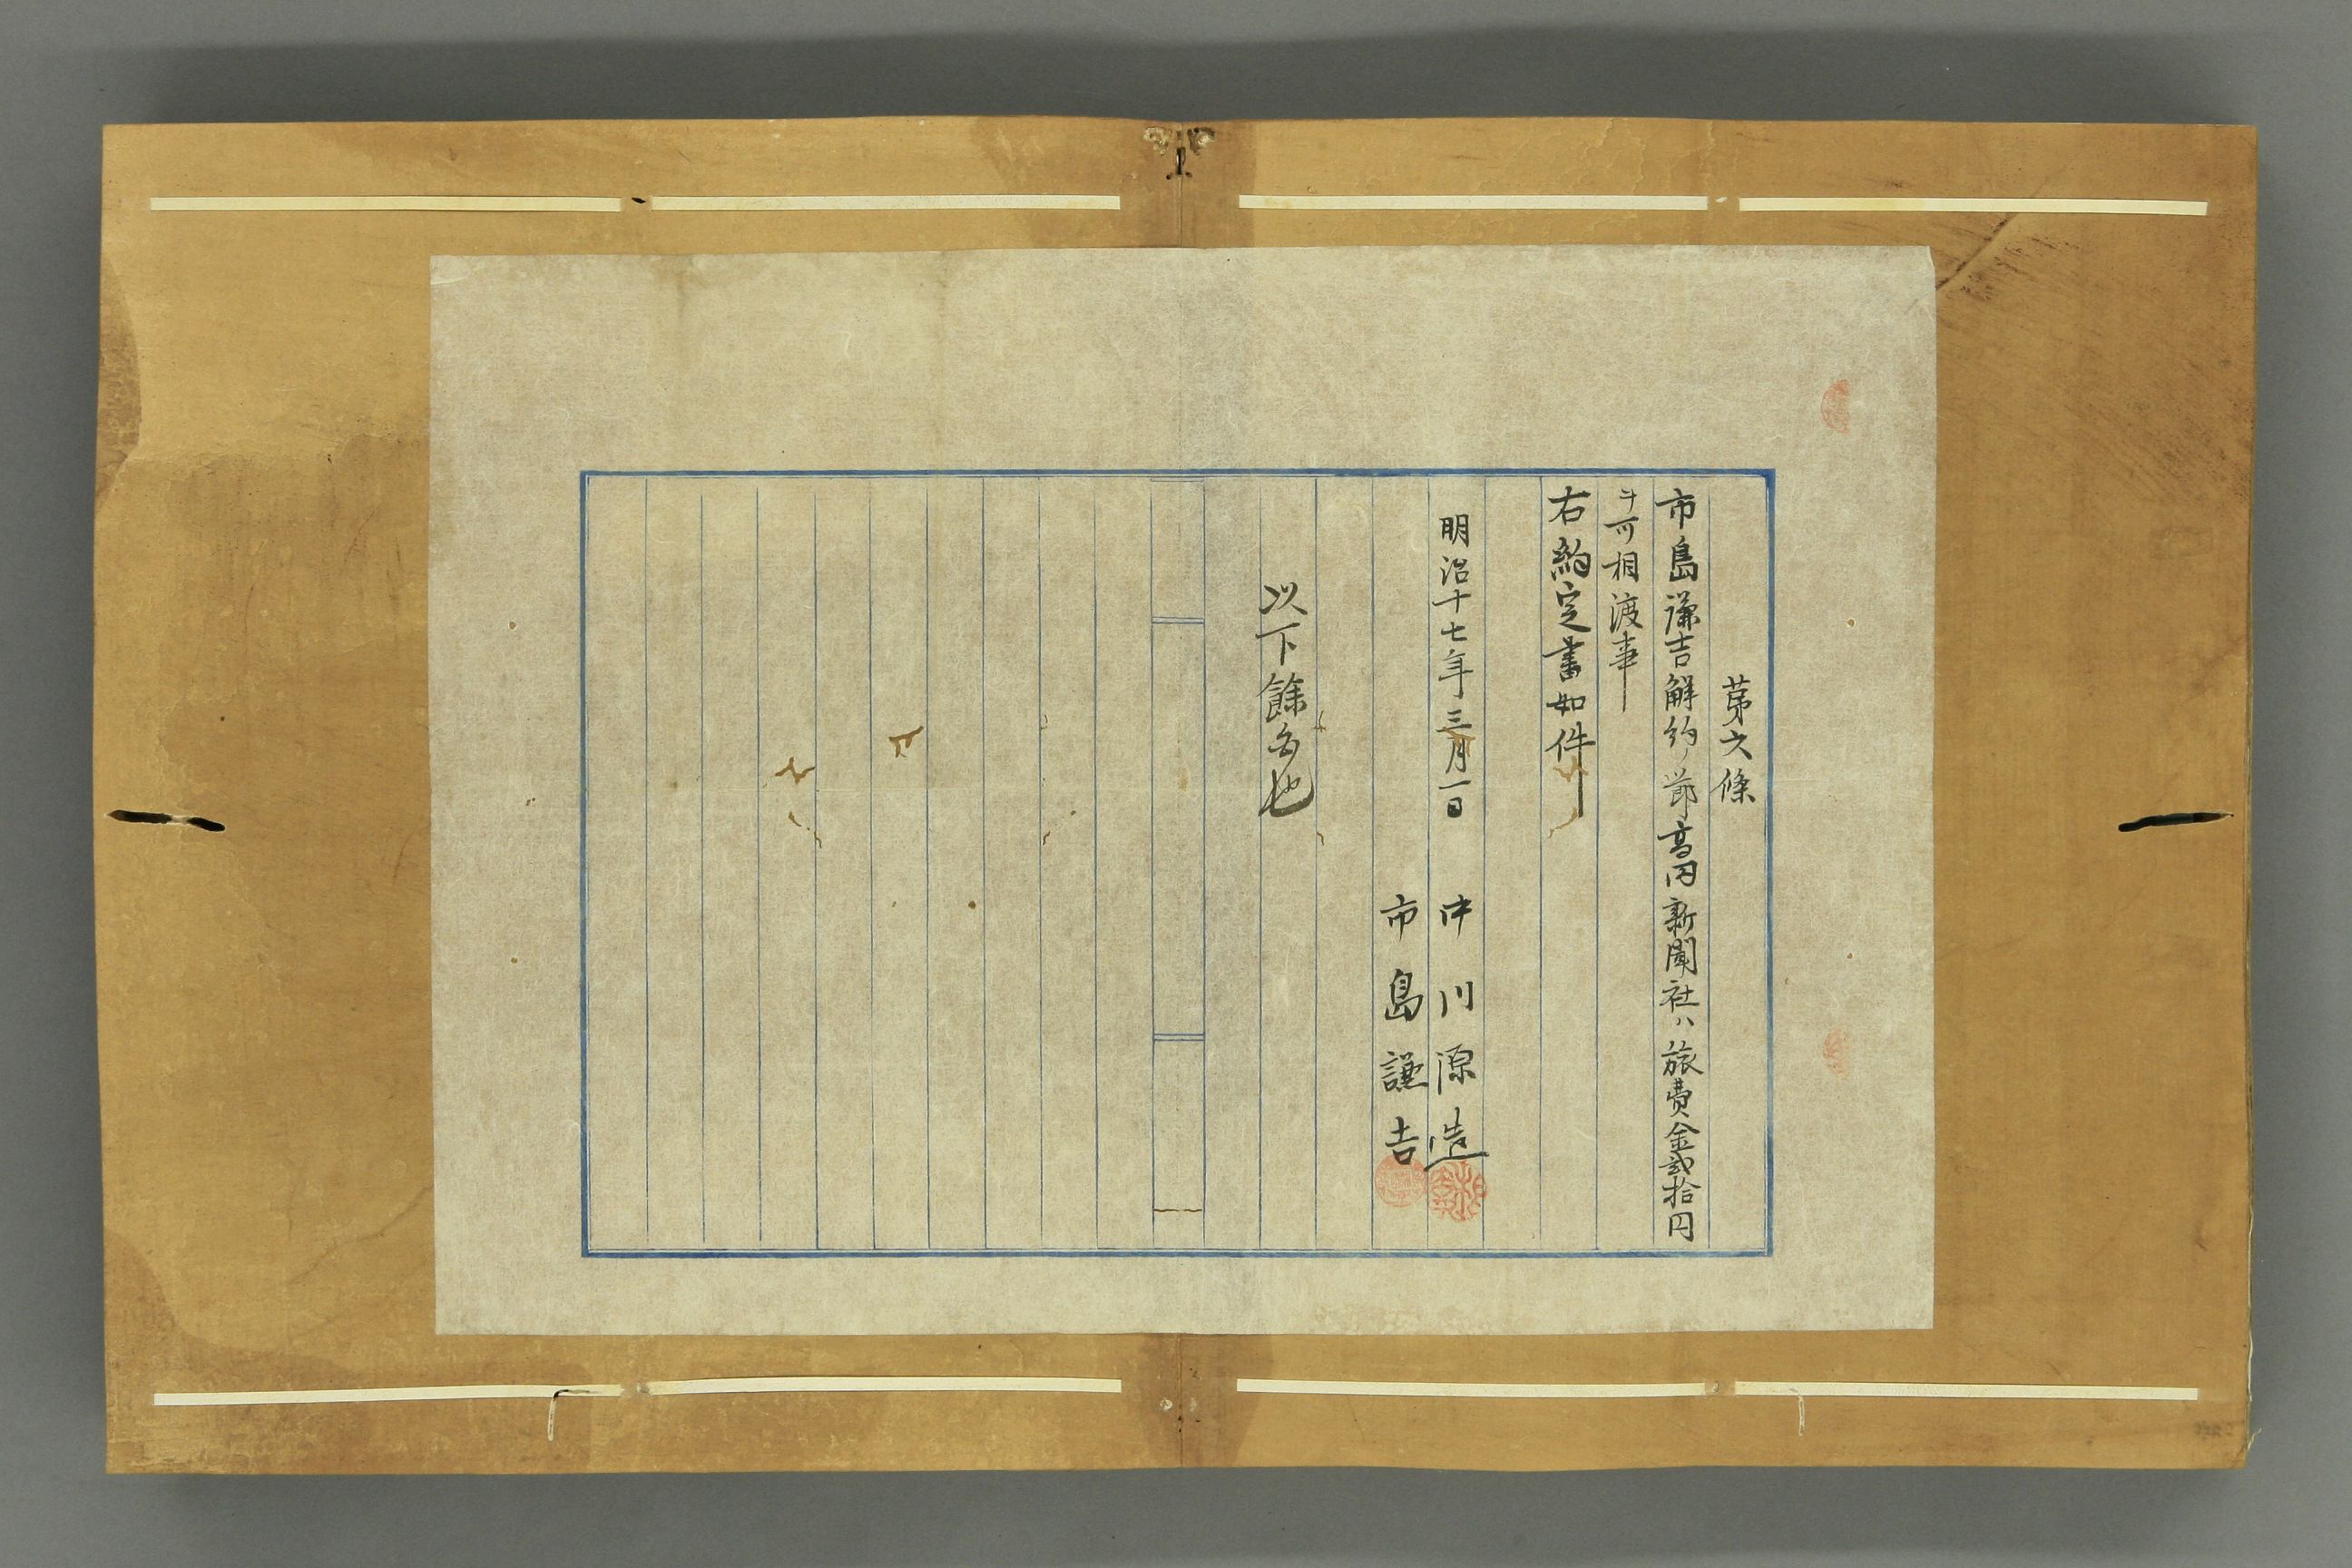 苐六條
市島謙吉解約ノ節高田新聞社ハ旅費金貳拾円
斗可相渡事
右約定書如件
明治十七年三月一日 中川源造
市島謙吉
以下餘白也